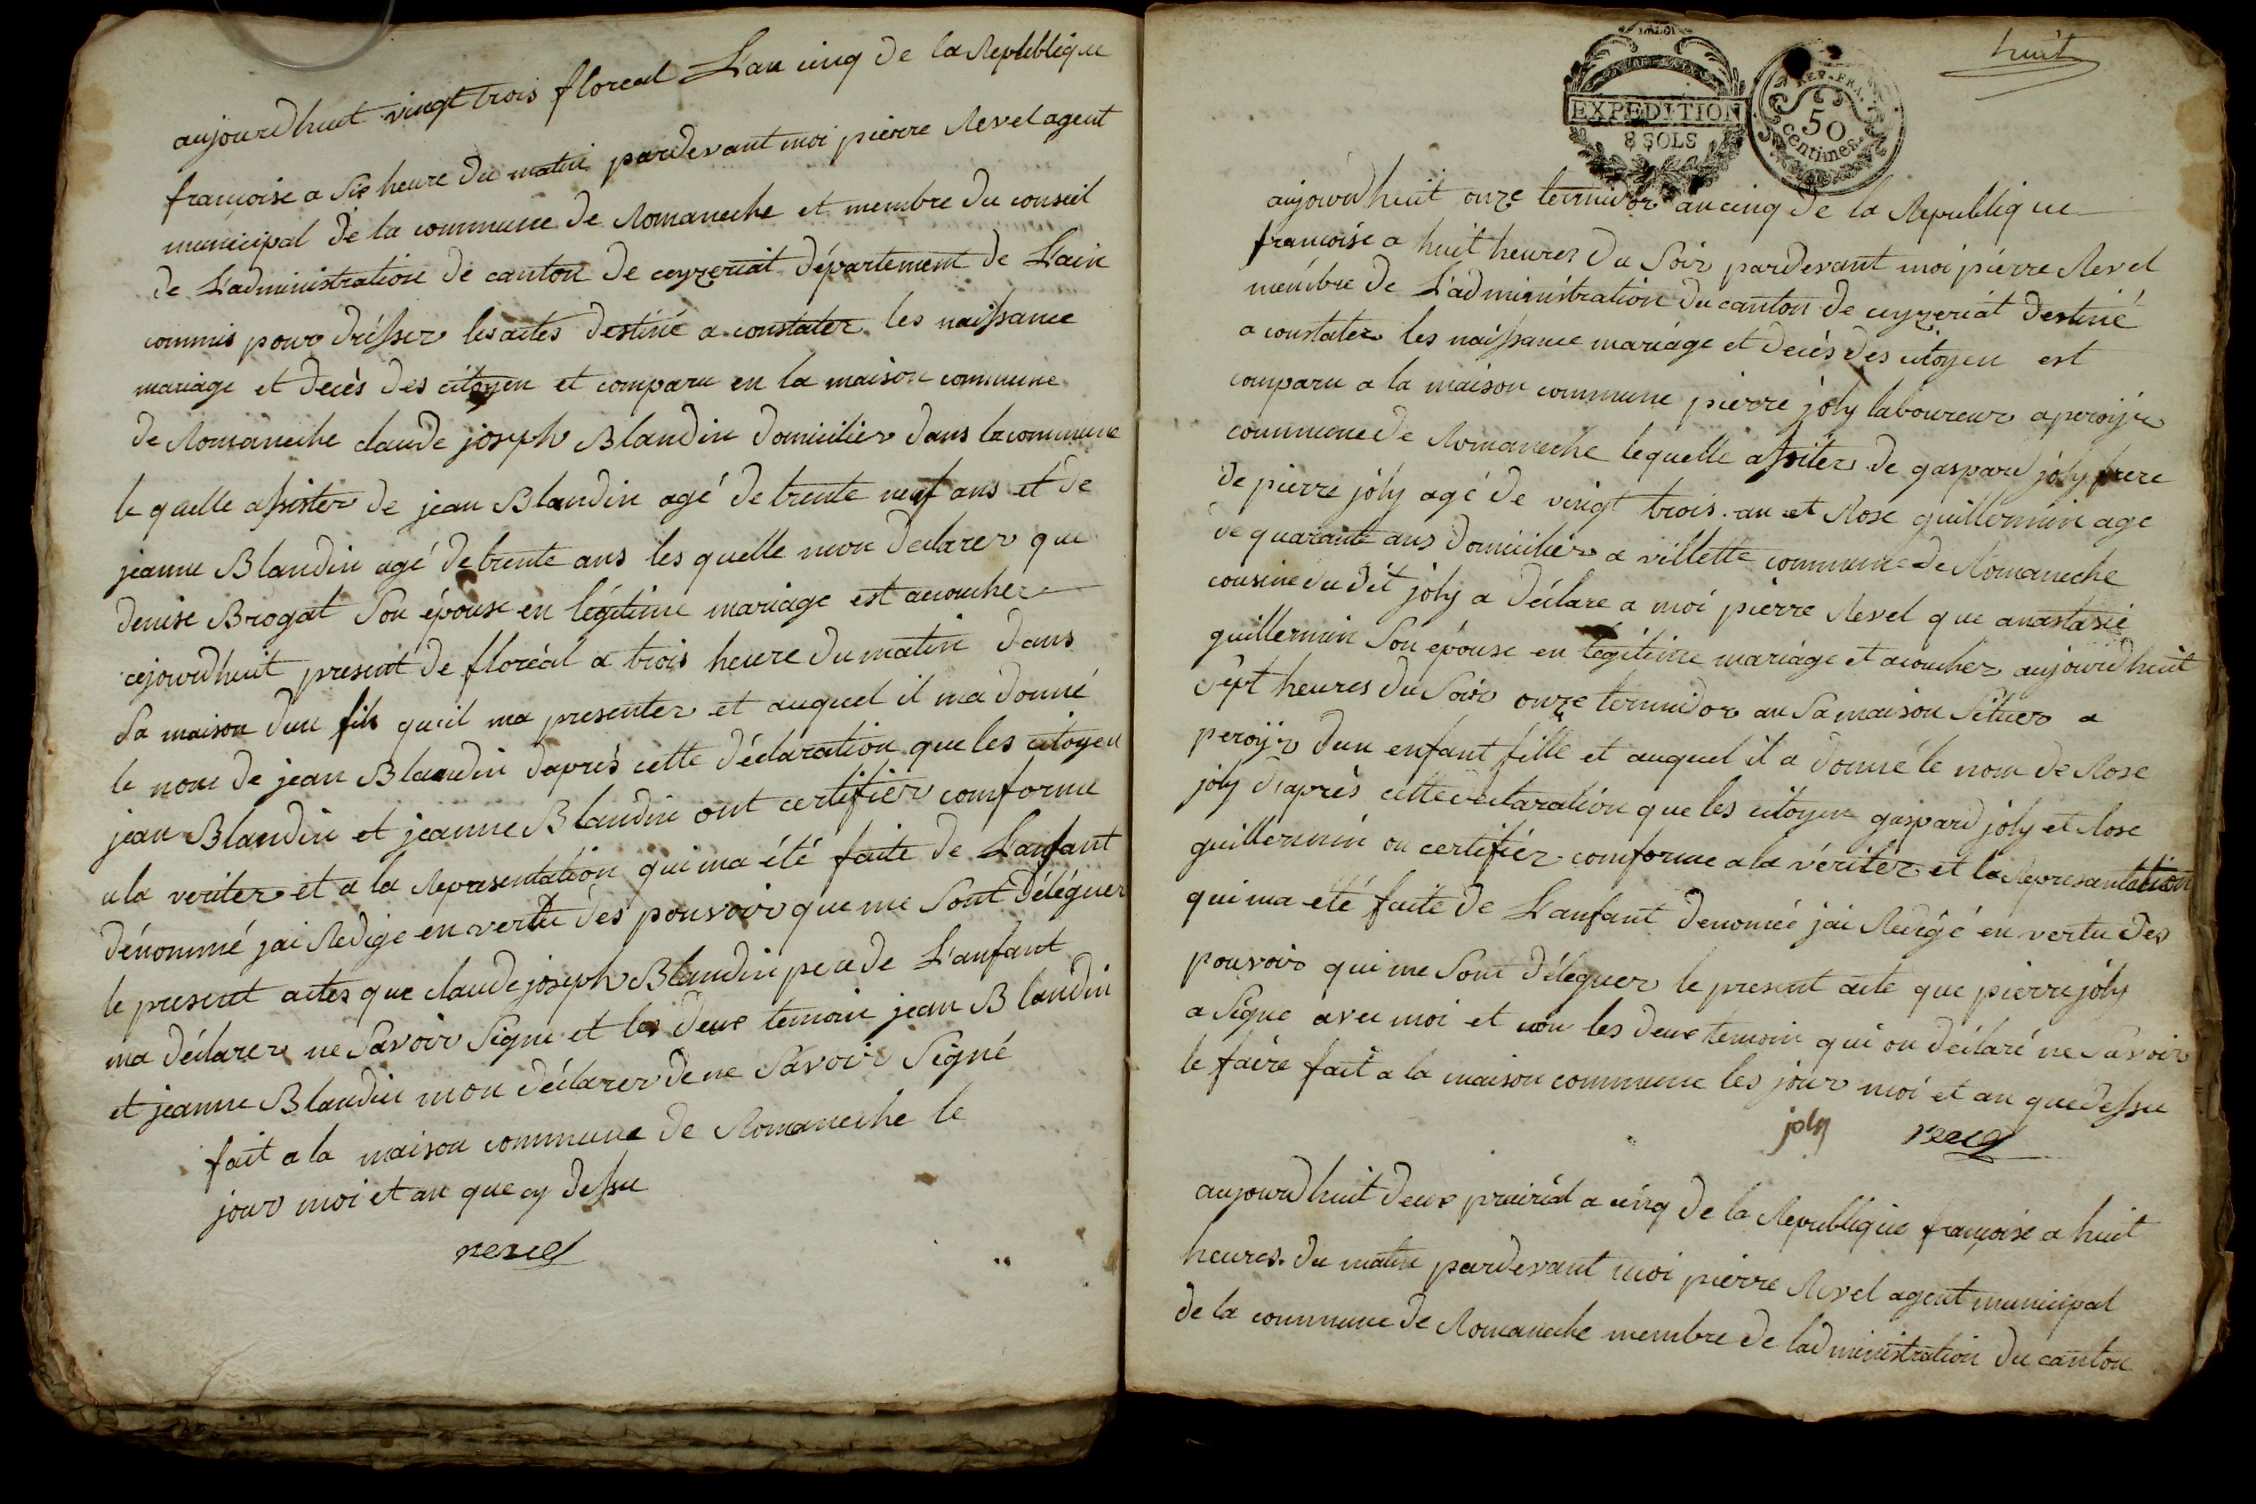 aujourdhuit vingt trois floreal L'an cinq de la Republique
françoise a Six heure du matin pardevant moi pierre Revel agent
municipal de la commune de Romaneche et membre du conseil
de L'administration de canton de ceyzeriat département de L'ain
commis pour drésser les actes destiné a constater les naissance
mariage et decès des citoyen et comparu en la maison commune
de Romaneche claude joseph Blandin domicilier dans la commune
le quelle assister de jean Blandin agé de trente neuf ans et de
jeanne Blandin agé de trente ans les quelle mon declarer que
denise Brogat Son épouse en légitime mariage est acoucher
cejourdhuit present de floréal a trois heure du matin dans
Sa maison dun fils qu'il ma presenter et auquel il ma donné
le nom de jean Blandin daprès cette déclaration que les citoyen
jean Blandin et jeanne Blandin ont certifier comforme
a la veriter et a la Representation qui ma été faite de L'anfant
dénommé jai Redige en vertu des pouvoir que me Sont déléguer
le present actes que claude joseph Blandin pere de L'anfant
ma déclarer ne Savoir Signe et les deux temoin jean Blandin
et jeanne Blandin mon déclarer de ne Savoir Signé
fait a la maison commune de Romaneche le
jour moi et an que cy dessu
revel
huit
EXPEDITION
8 SOLS
REP. FRA.
50
centimes
aujourdhuit onze termidor an cinq de la Republique
françoise a huit heures du Soir pardevant moi pierre Revel
membre de L'administration du canton de ceyzeriat destiné
a constater les naissance mariage et decès des citoyen est
comparu a la maison commune pierre joly laboureur a peroyr
commune de Romaneche lequelle assiter de gaspard joly frere
de pierre joly agé de vingt trois an et Rose guillermin age
de quarante ans domicilier a villette commune de Romaneche
cousine du dit joly a déclare a moi pierre Revel que anastasie
guillermin Son épouse en légitime mariage et acoucher aujourdhuit
Sept heures du Soir onze termidor an Sa maison Situer a
peroyr dun enfant fille et auquel il a donné le nom de Rose
joly d'après cette declaration que les citoyen gaspard joly et Rose
guillermin on certifier comforme a la vériter et la Representation
qui ma eté faite de L'anfant denomée jai Redigé en vertu des
pouvoir qui me Sont déleguer le present acte que pierre joly
a Signe avec moi et non les deux temoin qui on déclaré ne Savoir
le faire fait a la maison commune les jour moi et an que dessu
joly revel
aujourdhuit deux prairial a cinq de la Republique françoise a huit
heures du matin pardevant moi pierre Revel agent municipal
de la commune de Romaneche membre de ladministration du canton